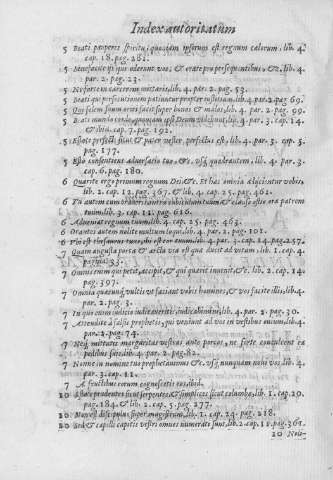 Index autoritatum
5 Beati pauperes spiritu, quoniam ipsorum est regnum cælorum. lib. 4.
cap. 18. pag. 261.
5 Benefacite ijs qui oderunt vos, & orate pro persequentibus, &c, lib. 4.
par. 2. pag. 23.
5 Ne forte in carcerem mittaris, lib. 4. par. 2. pag. 53.
5 Beati qui persecutionem patiuntur propter iustitiam, lib. 4. par. 2. pag 69.
5 Qui solem suum oriri facit super bonos & malos, lib. 4. par. 2. pag. 99.
5 Beati mundo corde, quoniam ipsi Deum videbunt, lib. 4. par. 3. cap. 14.
& ibid. cap. 7. pag. 192.
5 Estote perfecti sicut & pater vester perfectus est, lib. 4. par. 3. cap. 5.
pag. 177.
5 Esto consentiens aduersario tuo, &c. vsq; quadrantem, lib. 4. par. 3.
cap. 6. pag. 180.
6 Quærite ergo primum regnum Dei &c. Et hæc omnia adijcientur vobis,
lib. 2. cap. 12. pag. 367. & lib. 4. cap. 25. pag. 461.
6 Tu autem cum oraueris intra in cubiculum tuum & clauso ostio ora patrem
tuum, lib. 3. cap. 11. pag. 616.
6 Adueniat regnum tuum, lib. 4. cap. 25. pag. 463.
6 Orantes autem nolite multum loqui, lib. 4. par. 2. pag. 101.
6 Vbi est thesaurus tuus, ibi est cor tuum, lib. 4. par. 3. cap. 14. pag. 257.
7 Quam angusta porta & arcta via est quæ ducit ad vitam, lib. 1. cap. 4.
pagina 33.
7 Omnis enim qui petit, accipit, & qui quærit inuenit, &c. lib. 2. cap. 14.
pag. 397.
7 Omnia quæcunq; vultis vt faciant vobis homines, & vos facite illis, lib. 4.
par. 2. pag. 3.
7 In quo enim iudicio iudicaueritis, iudicabimini, lib. 4. par. 2. pag. 30.
7 Attendite à falsis prophetis, qui veniunt ad vos in vestibus ouium, lib. 4.
par. 2. pag. 74.
7 Neq; mittatis margaritas vestras ante porcos, ne forte conculcent eas
pedibus suis, lib. 4. par. 2. pag. 82.
7 Nonne in nomine tuo prophetauimus &c. vsq; nunquam noui vos, lib. 4.
par. 3. cap. 11.
7 A fructibus eorum cognoscetis eos, ibid.
10 Estote prudentes sicut serpentes & simplices sicut columbæ, lib. 1. cap. 29.
pag. 184. & lib. 2. cap. 5. pag. 277.
10 Non est discipulus super magistrum, lib. 1. cap. 24. pag. 218.
10 Sed & capilli capitis vestri omnes numerati sunt, lib. 2. cap. 11. pag. 361.
10 Noli-